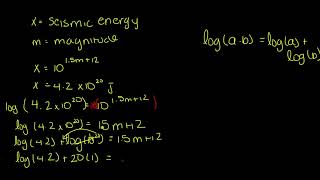 x = seismic energy
m = magnitude
x = 10^1.5m+12
x = 4.2 x 10^20 J
log (4.2 x 10^20) = 10^1.5m+12)
log (4.2 x 10^20) = 1.5m+12
log (4.2) + log (10^20) = 1.5m+12
log (4.2) + 20(1) =
log (a·b) = log(a) +
log(b)